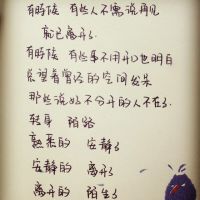 有时候 有些人不需说再见
就已离开了
有时候 有些事不用开口也明白
那些说好不分开的人不在了
转身 陌路
熟悉的 安静了
安静的 离开了
离开的 陌生了